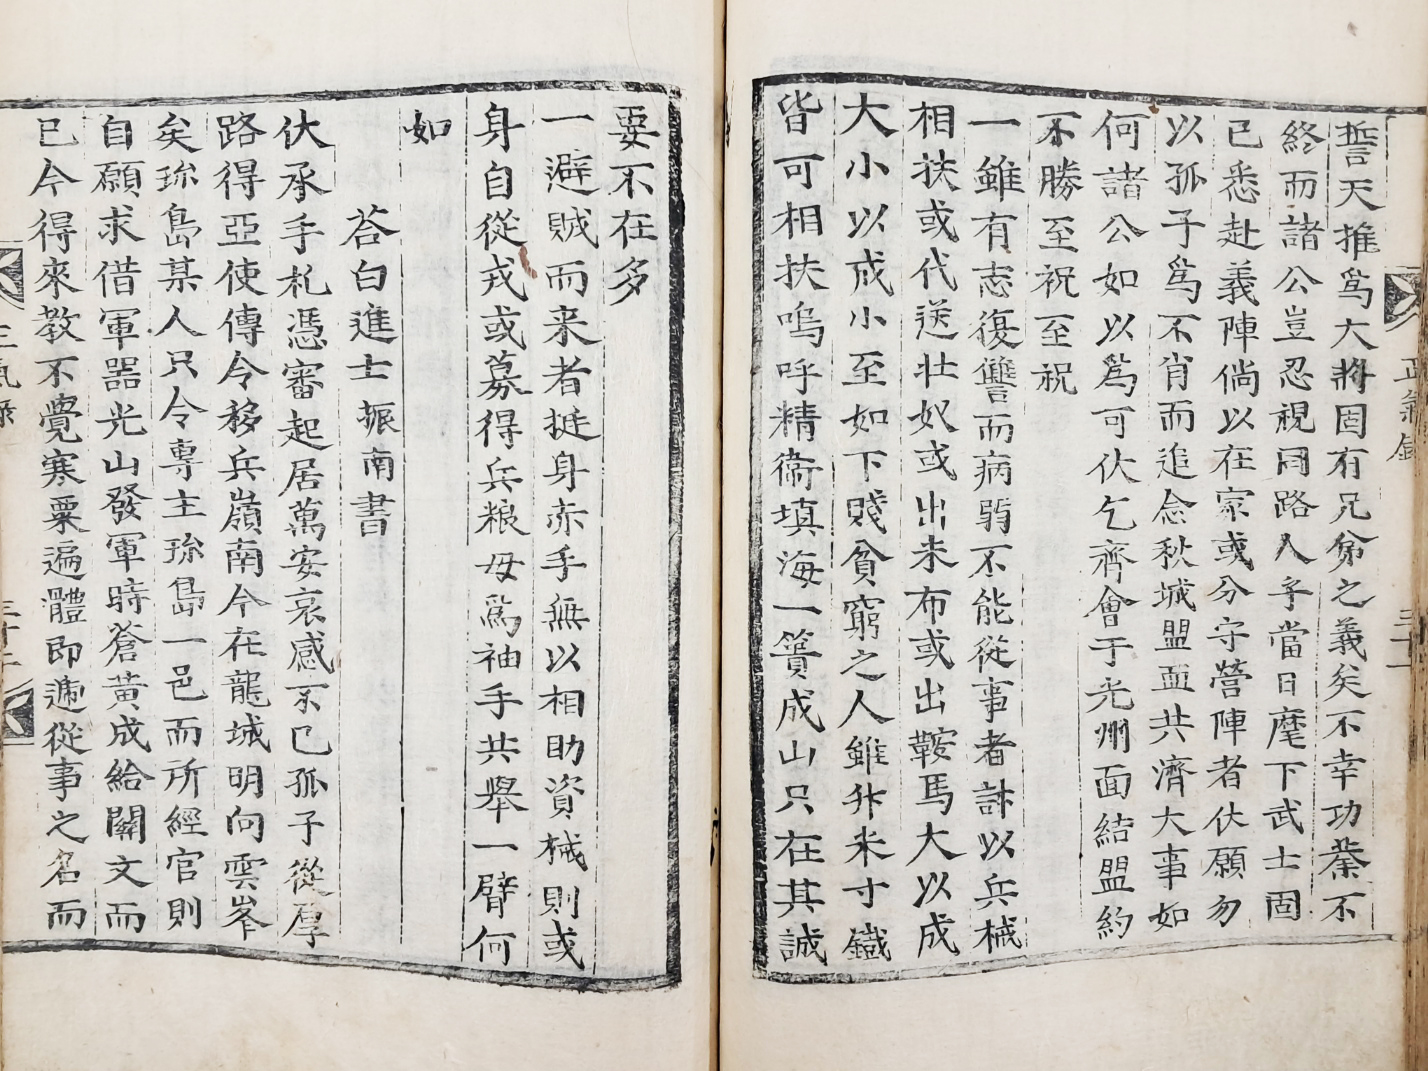 誓天推爲大將固有兄弟之義矣不幸功業不
終而諸公豈忍視同路人乎當日麾下武士固
已悉赴義陣倘以在家或分守營陣者伏願勿
以孤子爲不肖而追念秋城盟血共濟大事如
何諸公如以爲可伏乞齊會于光州面結盟約
不勝至祝至祝
一雖有志復讐而病弱不能從事者討以兵械
相扶或代送壯奴或出米布或出鞍馬大以成
大小以成小至如下賤貧窮之人雖升米寸鐵
皆可相扶嗚呼精衛塡海一簣成山只在其誠
要不在多
一避賊而来者挺身赤手無以相助資械則或
身自從戎或募得兵粮毋爲袖手共舉一臂何
如
荅白進士振南書
伏承手札憑審起居萬安哀感不已孤子從厚
路得亞使傳令移兵嶺南今在龍城明向雲峯
矣珎島某人只令專主珎島一邑而所經官則
自願求借軍器光山發軍時蒼黃成給關文而
已今得來教不覺寒粟遍體即遞從事之名而
正氣錄
三十一
正氣錄